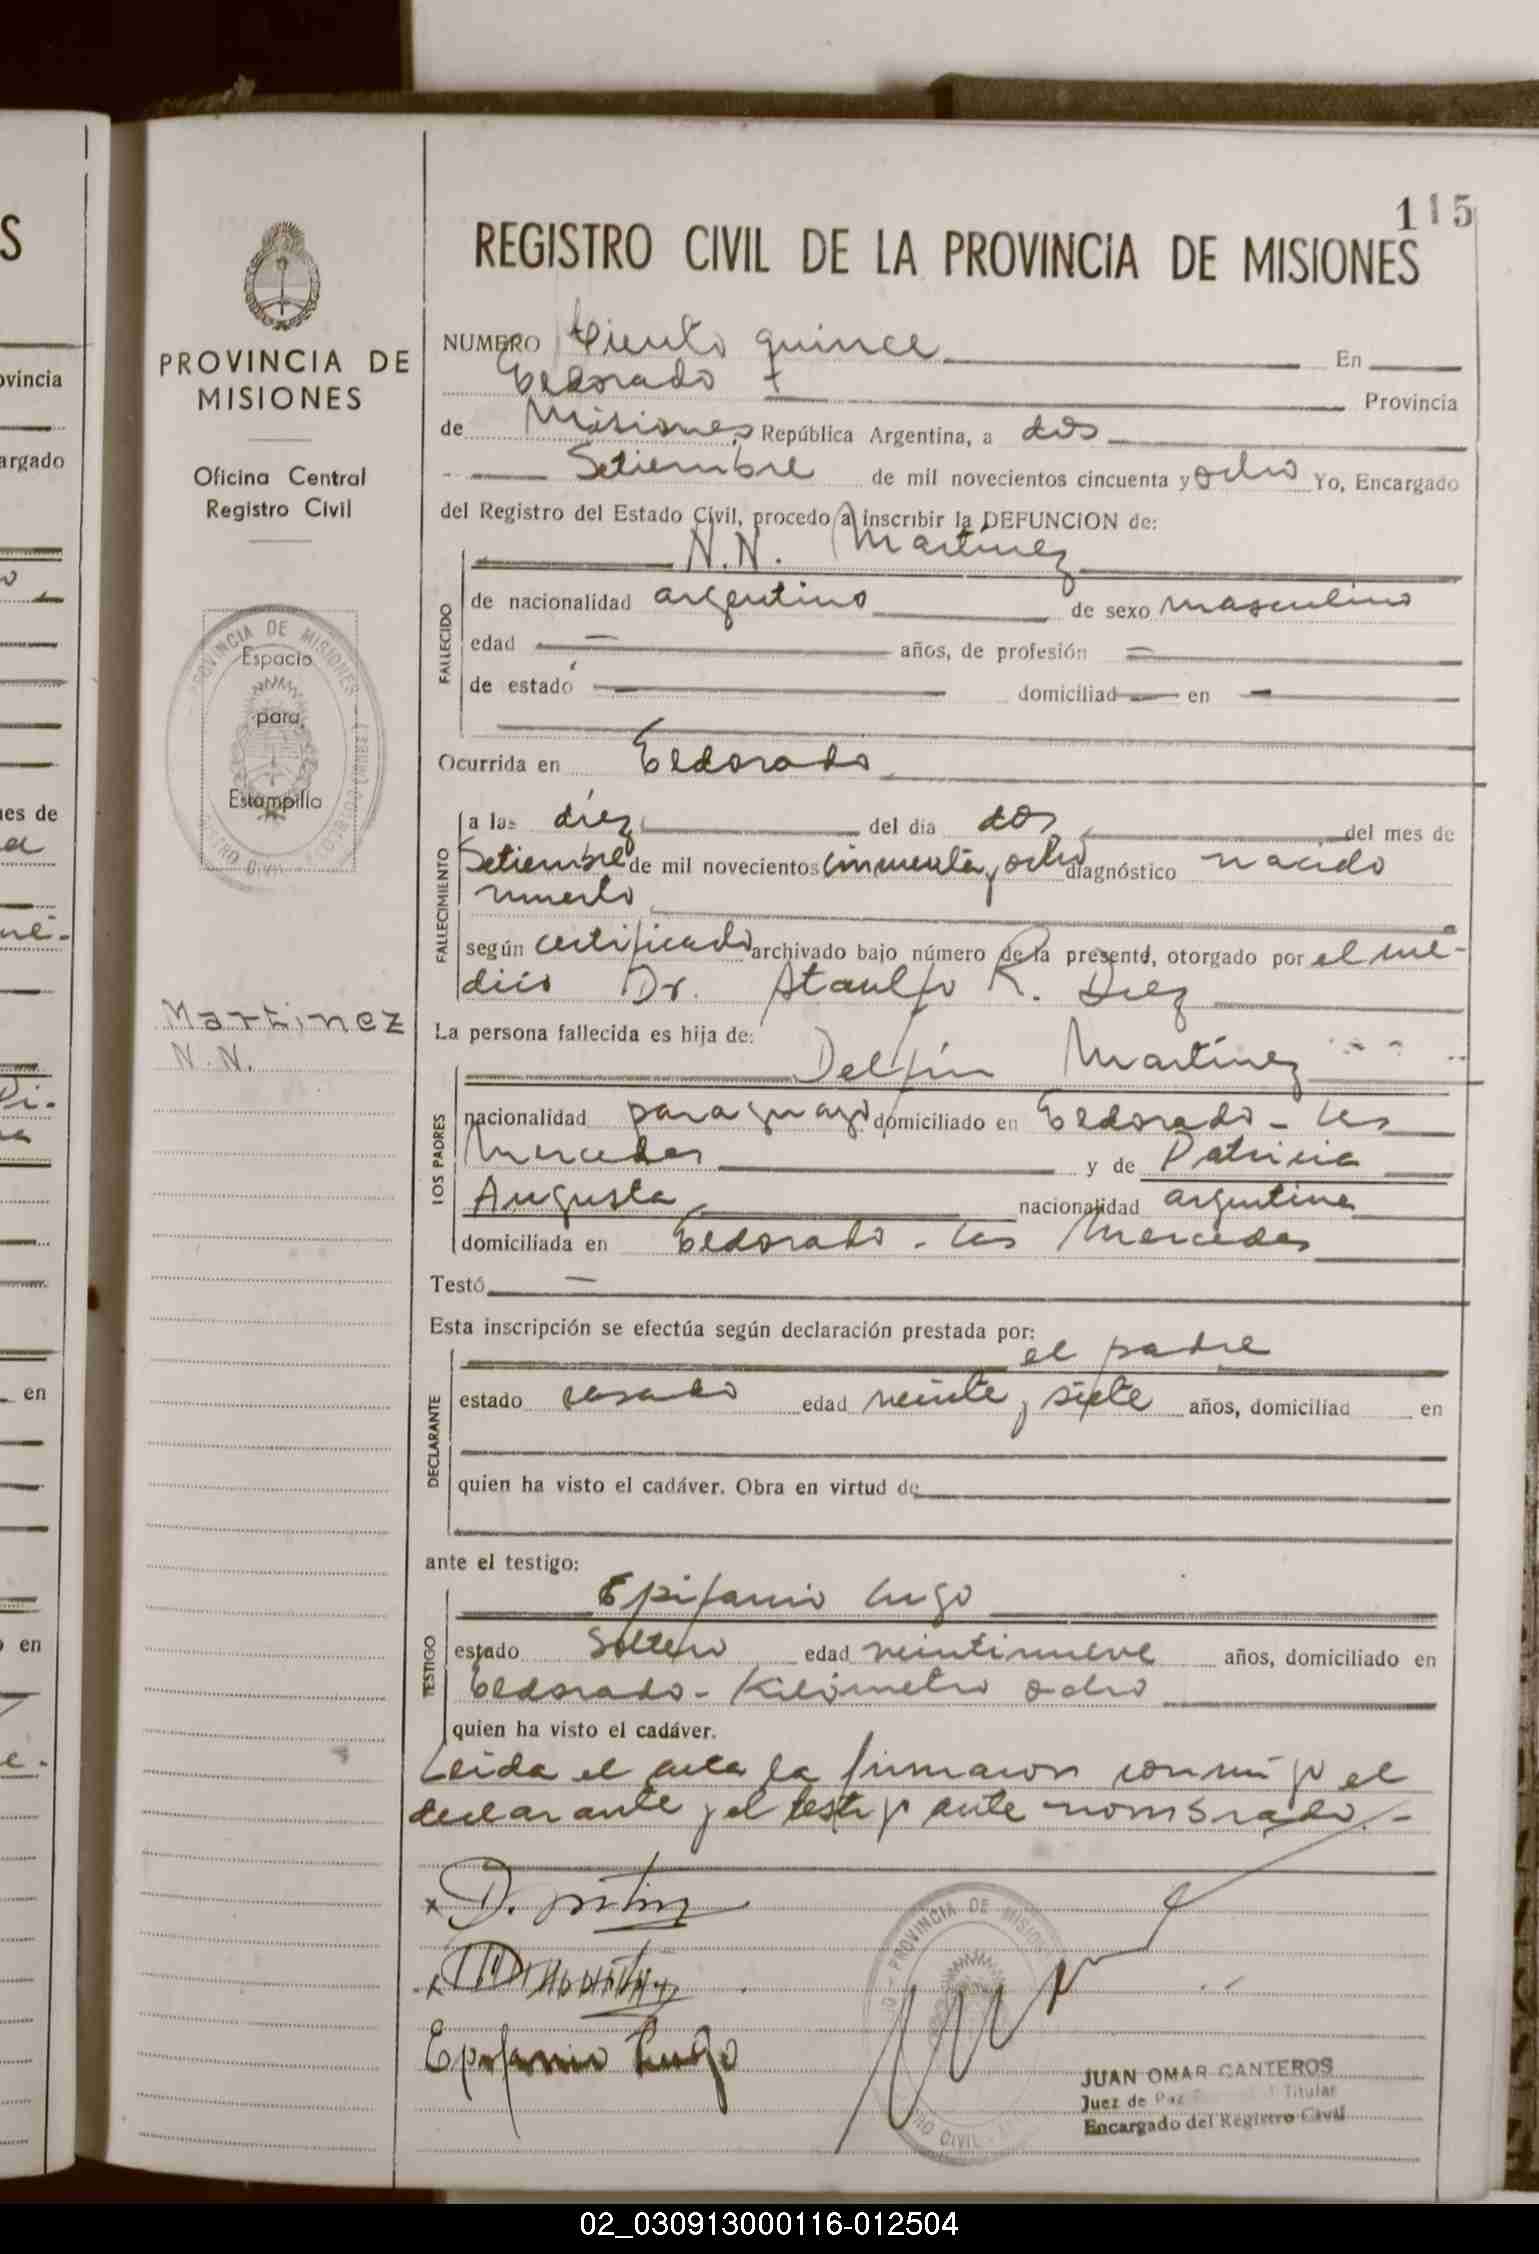 115
REGISTRO CIVIL DE LA PROVINCIA DE MISIONES
PROVINCIA DE
MISIONES
Oficina Central
Registro Civil
PROVINCIA DE MISIONES
Espacio
para
Estampilla
Martinez
N.N.
NUMERO Ciento quince En
Eldorado Provincia
de Misiones, República Argentina, a dos
Setiembre de mil novecientos cincuenta y ocho Yo, Encargado
del Registro del Estado Civil, procedo a inscribir la DEFUNCION de:
N.N. Martínez
FALLECIDO
de nacionalidad argentino de sexo masculino
edad — años, de profesión —
de estado — domiciliad — en —
Ocurrida en Eldorado
FALLECIMIENTO
a las diez del día dos del mes de
Setiembre de mil novecientos cincuenta y ocho diagnóstico nacido
muerto
según certificado archivado bajo número de la presente, otorgado por el mé-
dico Dr. Ataulfo R. Diez
La persona fallecida es hija de:
Delfín Martínez
LOS PADRES
nacionalidad paraguayo domiciliado en Eldorado - Las
Mercedes y de Patricia
Augusta nacionalidad argentina
domiciliada en Eldorado - Las Mercedes
Testó —
Esta inscripción se efectúa según declaración prestada por:
el padre
DECLARANTE
estado casado edad veinte y siete años, domiciliad en
quien ha visto el cadáver. Obra en virtud de
ante el testigo:
Epifanio Lugo
TESTIGO
estado Soltero edad veintinueve años, domiciliado en
Eldorado - Kilómetro ocho
quien ha visto el cadáver.
Leída el acta la firmaron conmigo el
declarante y el testigo ante nombrado.-
Epifanio Lugo
PROVINCIA DE MISIONES
JUAN OMAR CANTEROS
Juez de Paz Titular
Encargado del Registro Civil
02_030913000116-012504